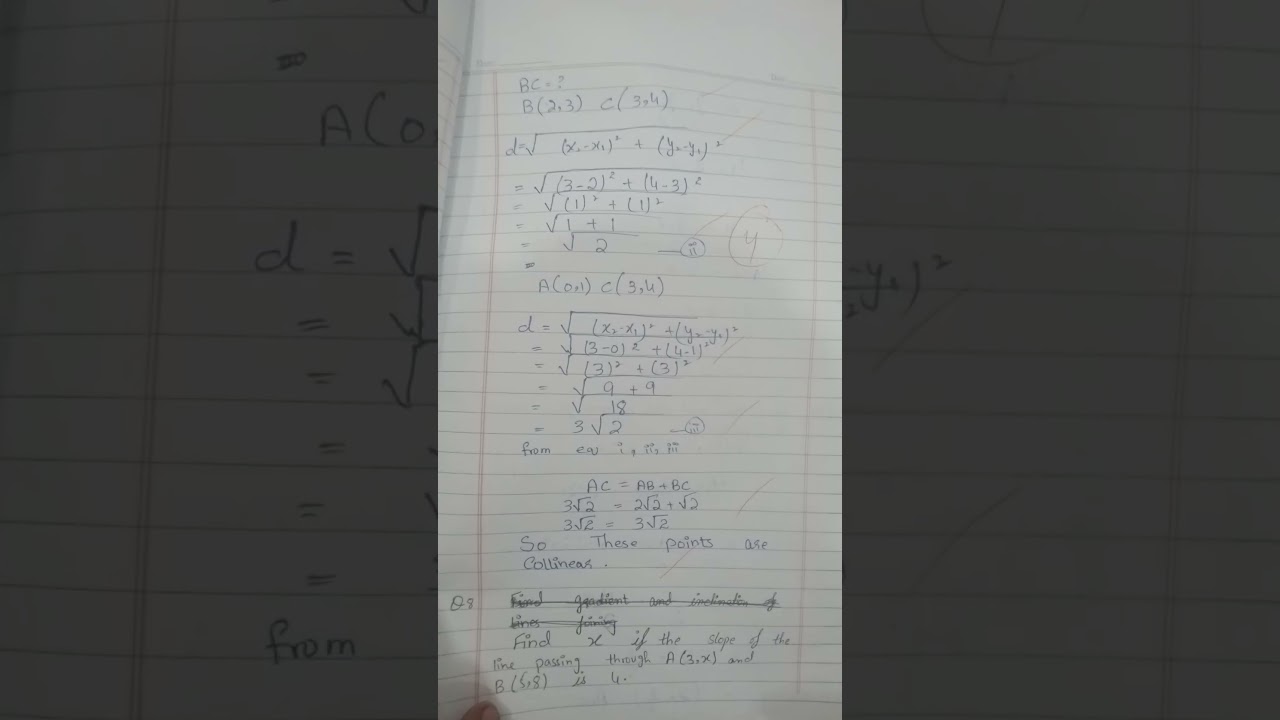 BC = ?
B(2,3) C(3,4)
d=√(x₂-x₁)² + (y₂-y₁)²
= √(3-2)² + (4-3)²
= √(1)² + (1)²
= √1 + 1
= √2 — ii
=
4
A(0,1) C(3,4)
d = √(x₂-x₁)² + (y₂-y₁)²
= √(3-0)² + (4-1)²
= √(3)² + (3)²
= √9 + 9
= √18
= 3√2 — iii
from eq i, ii, iii
AC = AB + BC
3√2 = 2√2 + √2
3√2 = 3√2
So These points are
Collinear.
Q8 Find gradient and inclination of
lines joining
Find x if the slope of the
line passing through A(3,x) and
B(5,8) is 4.